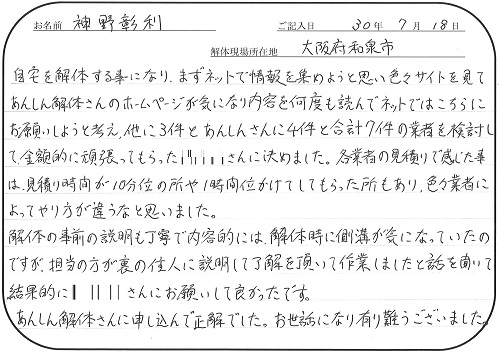 お名前 神野彰利 ご記入日 30年 7月 18日
解体現場所在地 大阪府和泉市
自宅を解体する事になり、まずネットで情報を集めようと思い色々サイトを見て
あんしん解体さんのホームページが気になり内容を何度も読んでネットではこちらに
お願いしようと考え、他に3件とあんしんさんに4件と合計7件の業者を検討し
て、金額的に頑張ってもらった さんに決めました。各業者の見積りで感じた事
は、見積り時間が10分位の所や1時間位かけてしてもらった所もあり、色々業者に
よってやり方が違うなと思いました。
解体の事前の説明も丁寧で内容的には、解体時に側溝が気になっていたの
ですが、担当の方が裏の住人に説明して了解を頂いて作業しましたと話を聞いて
結果的に さんにお願いして良かったです。
あんしん解体さんに申し込んで正解でした。お世話になり有り難うございました。